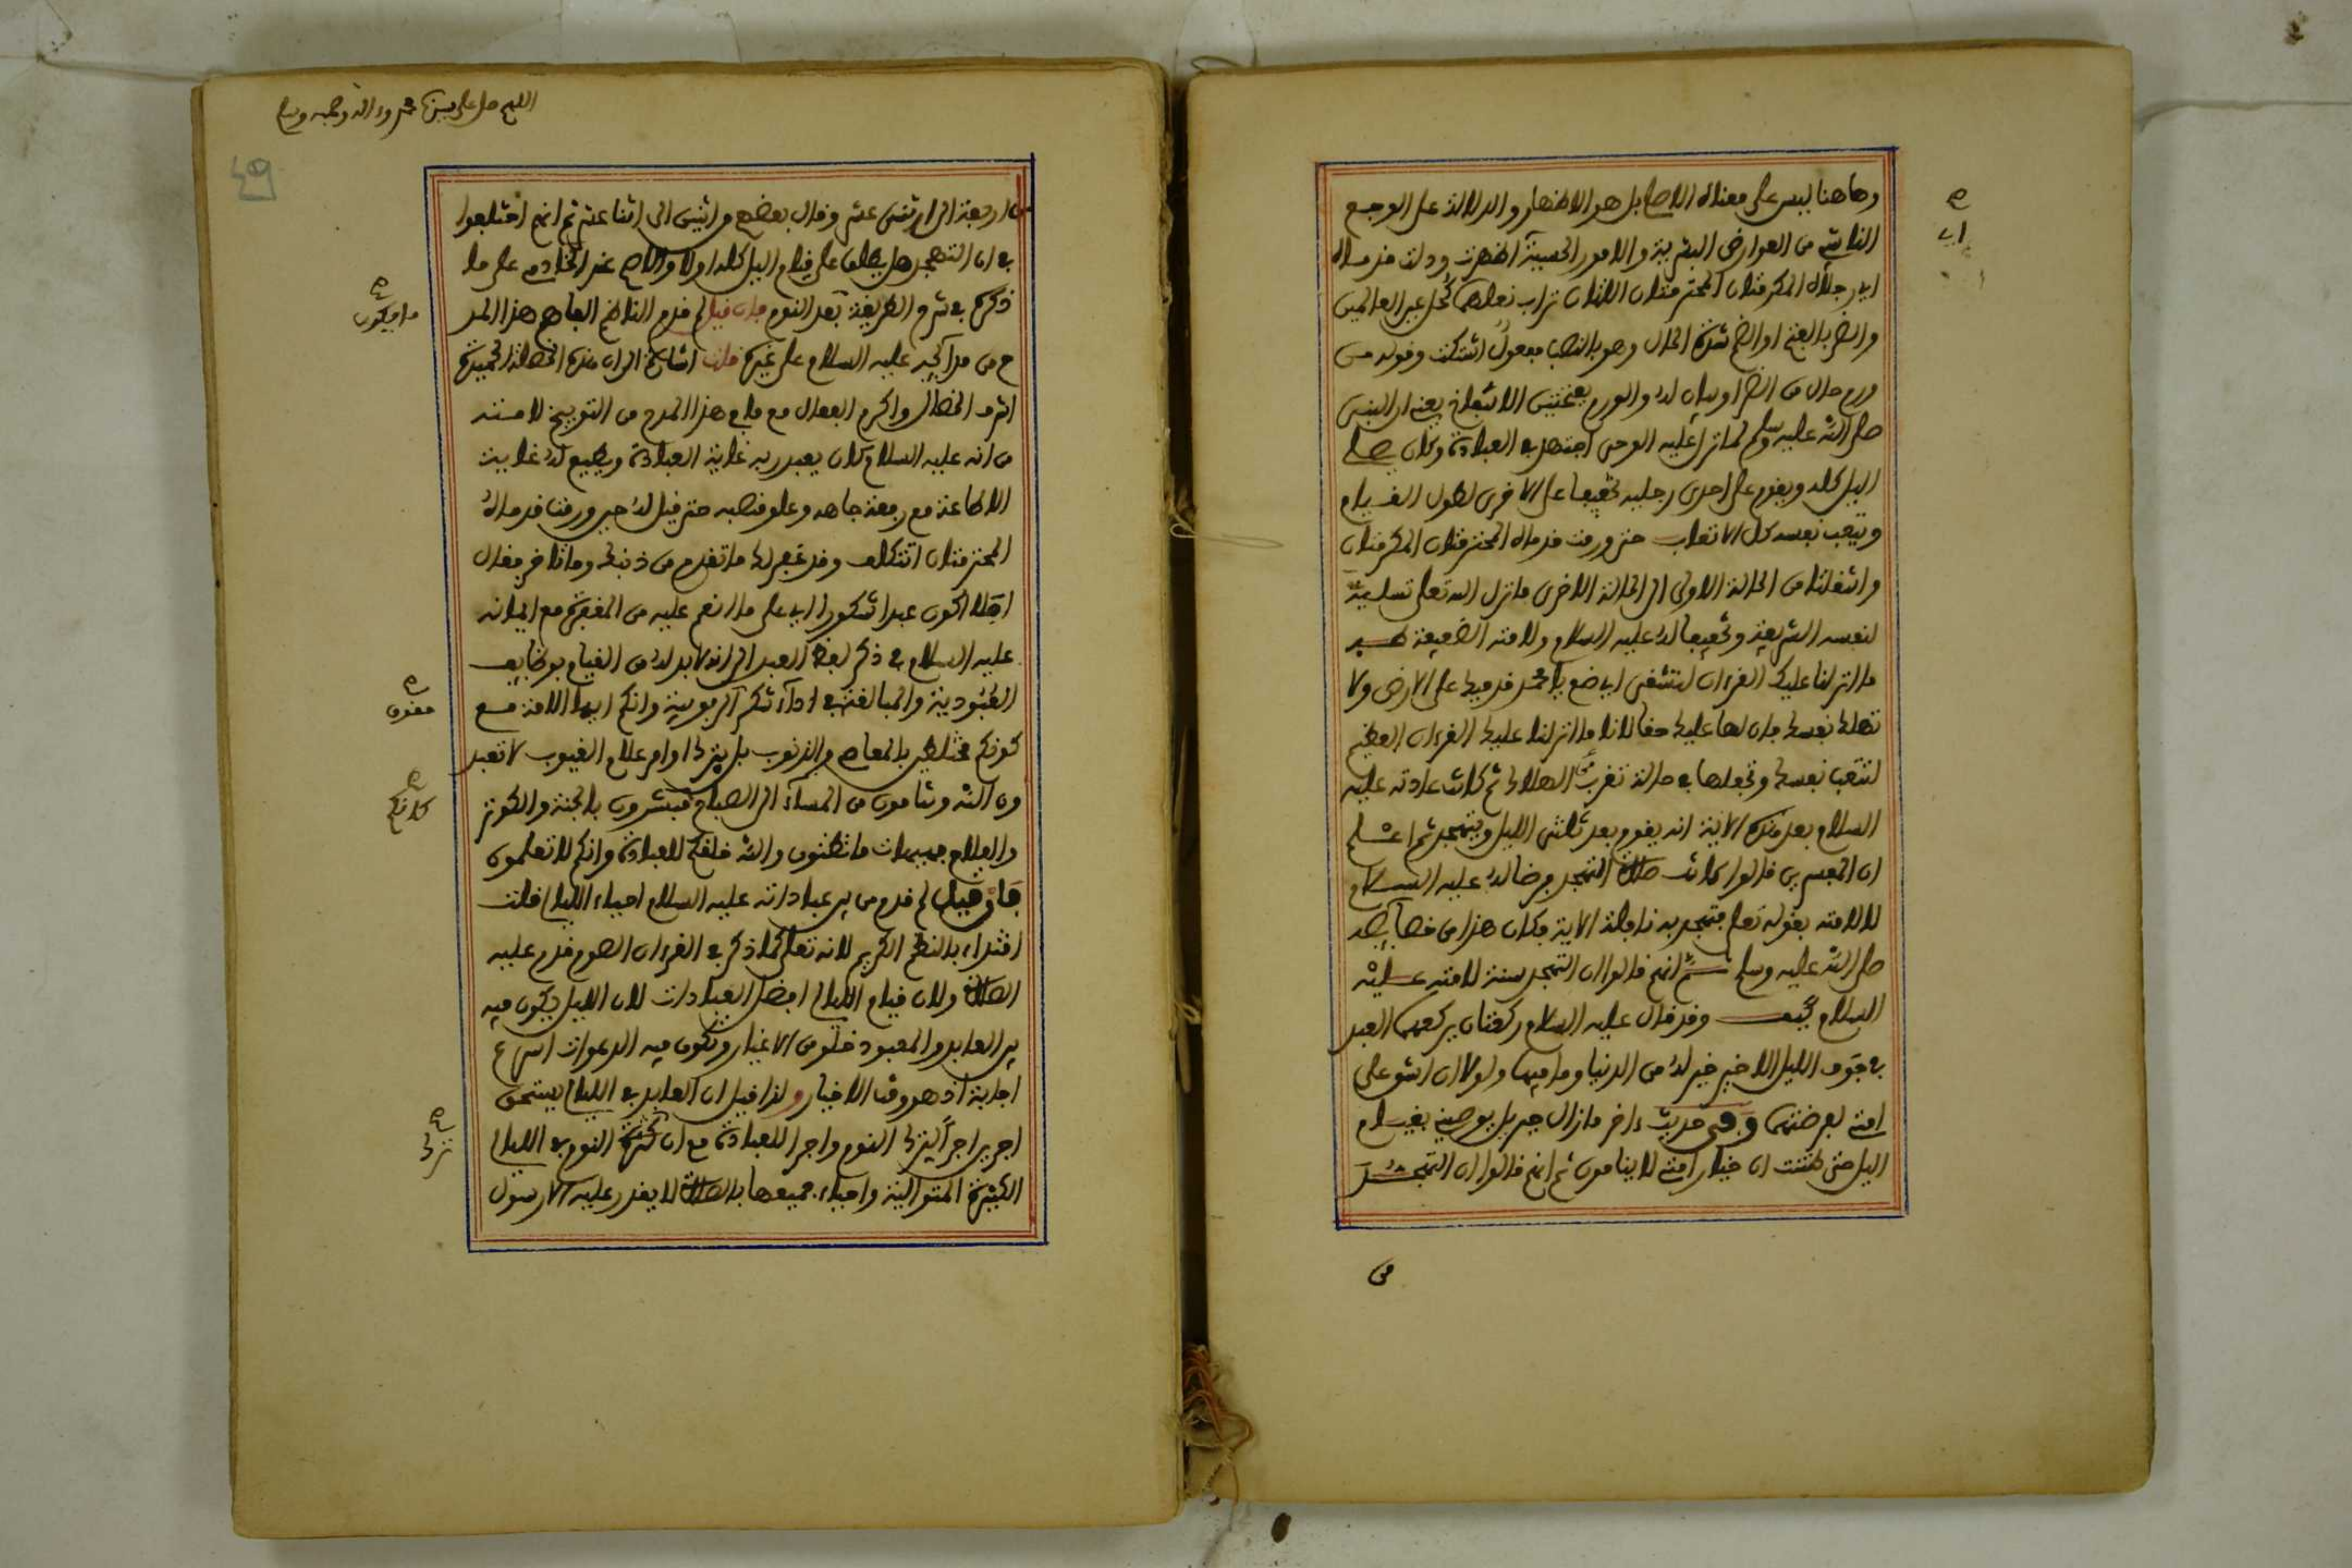 وهاهنا ليس على معناه الاصلي بل هو الاظهار والدلالة على الوجع
الناشي من العوارض البشرية والامور الحسية اظهرت ودلت قدماه
اي رجلاه المكرمتان المحترمتان اللتان تراب نعلهما كحل عين العالمين
والضر بالفتح او الضم شدة الحال وهو بالنصب مفعول اشتكت وقوله من
ورم حال من الضر او بيان له والورم بفتحتين الانتفاخ يعني ان النبي
صلى الله عليه وسلم لما نزل عليه الوحي اجتهد في العبادة وكان يصلي
اليل كله ويقوم على احدى رجليه تخفيفا على الاخرى لطول القيام
ويتعب نفسه كل الاتعاب حتى ورمت قدماه المحترمتان المكرمتان
وانتقلتا من الحالة الاولى الى الحالة الاخرى فانزل الله تعلى تسلية
لنفسه الشريفة وتخفيفا له عليه السلام ولامته الضعيفة طه
ما انزلنا عليك القرءان لتشقى اي ضع يا محمد قدميك على الارض ولا
تهلك نفسك فان لها عليك حقا لانا ما انزلنا عليك القرءان العظيم
لتتعب نفسك وتجعلها في حالة تقرب من الهلاك ثم كانت عادته عليه
السلام بعد هذه الاية انه يقوم بعد ثلثي الليل ويتهجد ثم اعلم
ان المفسرين قالوا كانت صلاة التهجد فرضا له عليه السلام
لا لامته بقوله تعلى فتهجد به نافلة الاية فكان هذا من خصائصه
صلى الله عليه وسلم ثم انهم قالوا ان التهجد سنة لامته عليه
السلام كيف وقد قال عليه السلام ركعتان يركعهما العبد
في جوف الليل الاخير خير له من الدنيا وما فيها ولولا ان اشق على
امتي لفرضتهما وفي حديث ءاخر ما زال جبريل يوصيني بقيام
اليل حتى ظننت ان خيار امتي لا ينامون ثم انهم قالوا ان التهجد
من
اي
اللهم صل على سيدنا محمد وءاله وصحبه وسلم
من اربعة الى اثنى عشر وقال بعضهم من اثنين الى اثنا عشر ثم انهم اختلفوا
في ان التهجد هل يطلق على قيام اليل كله اولا والاصح عند الخادمي على ما
ذكره في شرح الطريقة بعد النوم فان قيل لم قدم الناظم الفاهم هذا المد
ح من مدائحه عليه السلام على غيره قلت اشارة الى ان هذه الخصلة الحميدة
اشرف الخصال واكرم الفعال مع ما في هذا المدح من التوبيخ لامته
من انه عليه السلام كان يعبد ربه غاية العبادة ويطيع له غاية
الاطاعة مع رفعة جاهه وعلو منصبه حتى قيل له حين ورمت قدماه
المحترمتان اتتكلف وقد غفر لك ما تقدم من ذنبك وما تاخر فقال
افلا اكون عبدا شكورا اي على ما انعم عليه من المغفرة مع ايمانه
عليه السلام في ذكر لفظ العبد الى انه لا بد له من القيام بوظايف
العبودية والمبالغة في اداء شكر الربوبية وانكم ايها الامة مع
كونكم مختلطين بالمعاصي والذنوب بل بترك اوامر علام الغيوب لا تعبد
ون الله وتنامون من المساء الى الصباح فتبشرون بالجنة والكوثر
والفلاح هيهات ما تظنون والله خلقكم للعبادة وانكم لا تعلمون
فان قيل لم قدم من بين عباداته عليه السلام احياء الليل قلت
اقتداء بالنظم الكريم لانه تعلى كما ذكر في القرءان الصوم قدم عليه
الصلاة ولان قيام الليل افضل العبادات لان الليل يكون فيه
بين العابد والمعبود خلو من الاغيار وتكون فيه الدعوات اسرع
اجابة اذ هو وقت الاخيار ولذا قيل ان العابد في الليل يستحق
اجرين اجرا لترك النوم واجرا للعبادة مع ان كثرة النوم في الليل
الكثيرة المتوالية واحياء جميعها بالصلاة لا يقدر عليه الا رسول
ما يكون
مغرق
كانكم
ترك